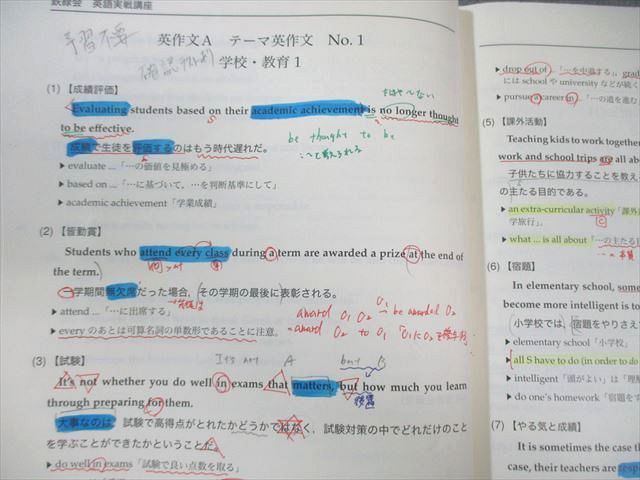 鉄緑会 英語実戦講座
予習不要
英作文A テーマ英作文 No. 1
学校・教育 1
(1)【成績評価】
Evaluating students based on their academic achievement is no longer thought
to be effective.
be thought to be
成績で生徒を評価するのはもう時代遅れだ。
▶ evaluate ...「…の価値を見極める」
▶ based on ...「…に基づいて、…を判断基準にして」
▶ academic achievement「学業成績」
(2)【皆勤賞】
Students who attend every class during a term are awarded a prize at the end of
the term.
一学期間無欠席だった場合、その学期の最後に表彰される。
▶ attend ...「…に出席する」
▶ every のあとは可算名詞の単数形であることに注意。
award O1 O2 → be awarded O2
= award O2 to O1
(3)【試験】
It's not A but B
It's not whether you do well in exams that matters, but how much you learn
through preparing for them.
大事なのは、試験で高得点がとれたかどうかではなく、試験対策の中でどれだけのこと
を学ぶことができたかということだ。
▶ do well in exams「試験で良い点数を取る」
▶ drop out of「…を中退する」。grad
には school や university などが続く
▶ pursue a career in「…の道を進む
(5)【課外活動】
Teaching kids to work together
work and school trips are all abo
子供たちに協力することを教え
の主たる目的である。
▶ an extra-curricular activity「課外
学旅行」。
▶ what ... is all about「…の主たる目
(6)【宿題】
In elementary school, some
become more intelligent is to
小学校では、宿題をやりさえ
▶ elementary school「小学校」
▶ all S have to do (in order to do
▶ intelligent「頭がよい」は「理解
▶ do one's homework「宿題をす
(7)【やる気と成績】
It is sometimes the case th
case, their teachers are resp